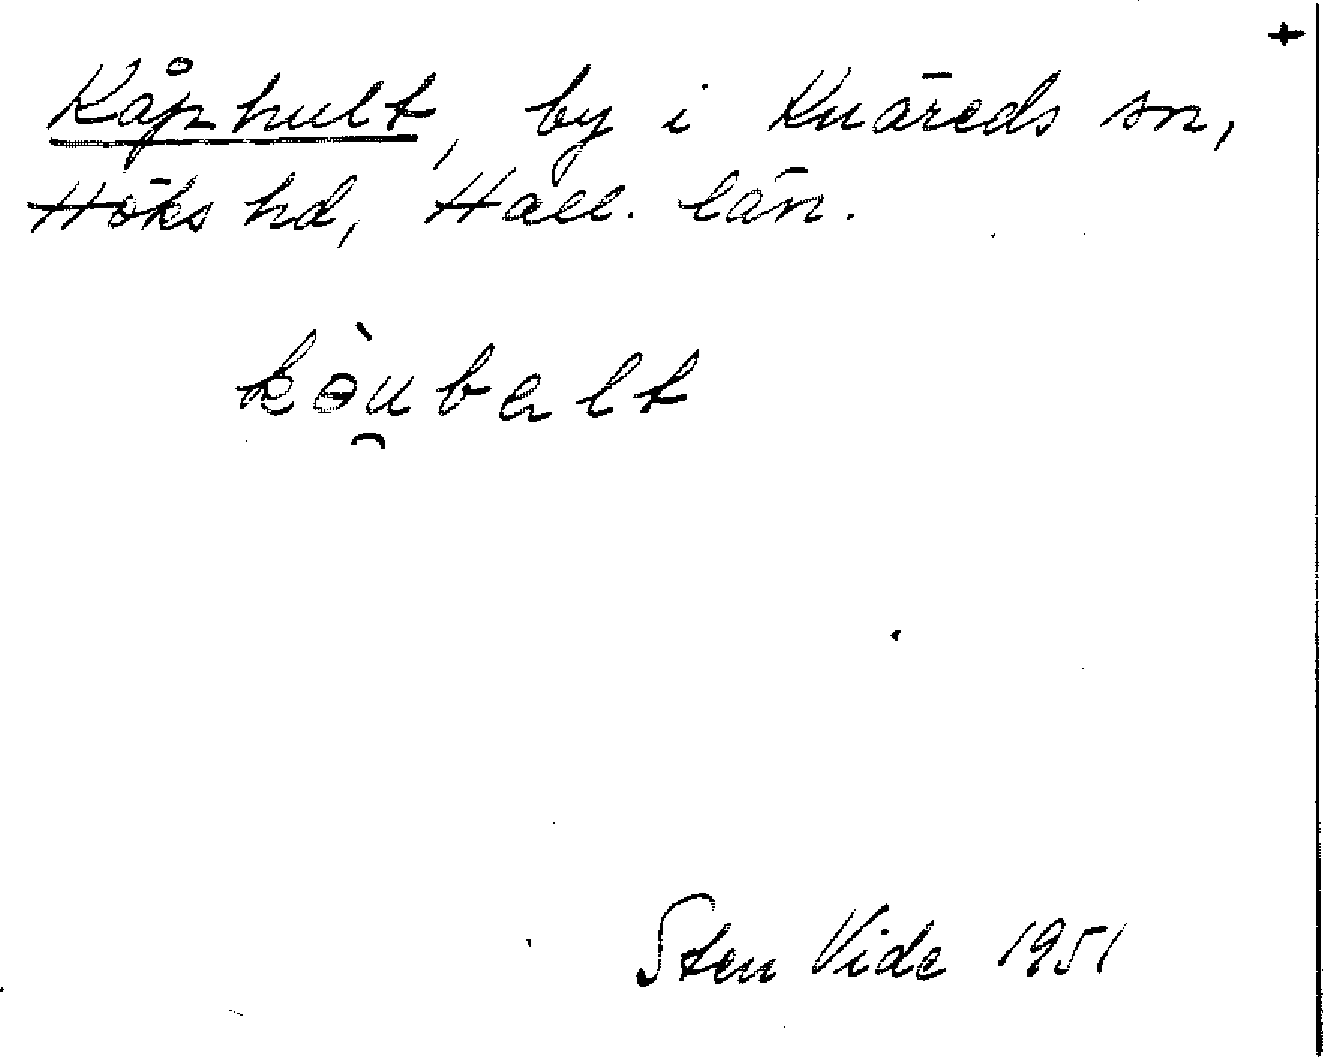 +
Kåphult, by i Knäreds sn,
Höks hd, Hall. län.
kə̀u̯balt
Sten Vide 1951